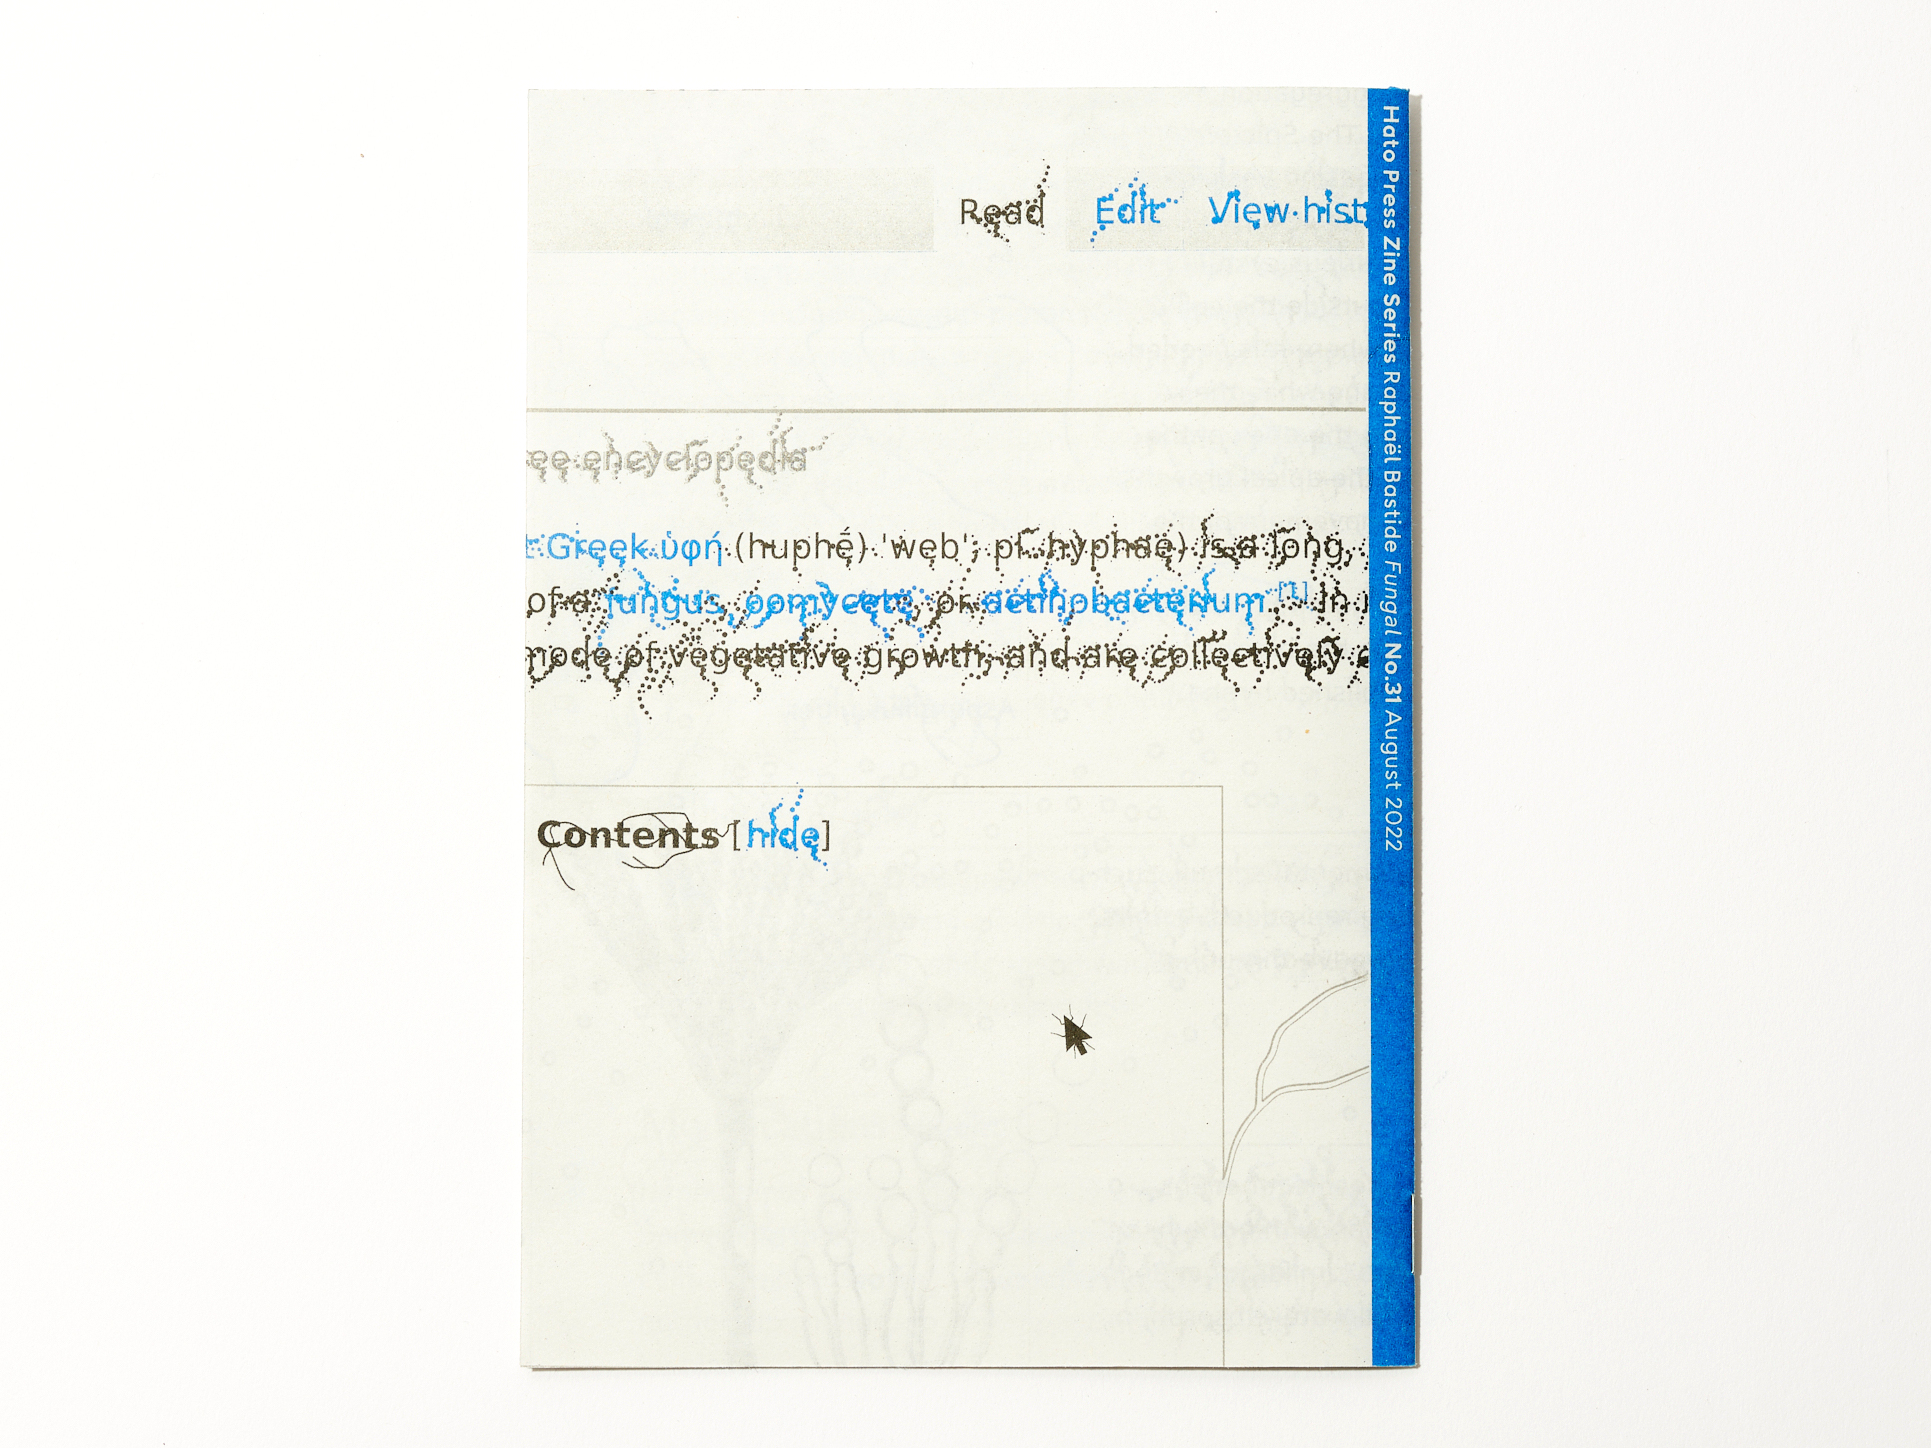 Read Edit View hist
ee encyclopedia
t Greek ὑφή (huphḗ) 'web'; pl. hyphae) is a long,
of a fungus, oomycete, or actinobacterium.[1] In
mode of vegetative growth, and are collectively
Contents [hide]
Hato Press Zine Series Raphaël Bastide Fungal No.31 August 2022